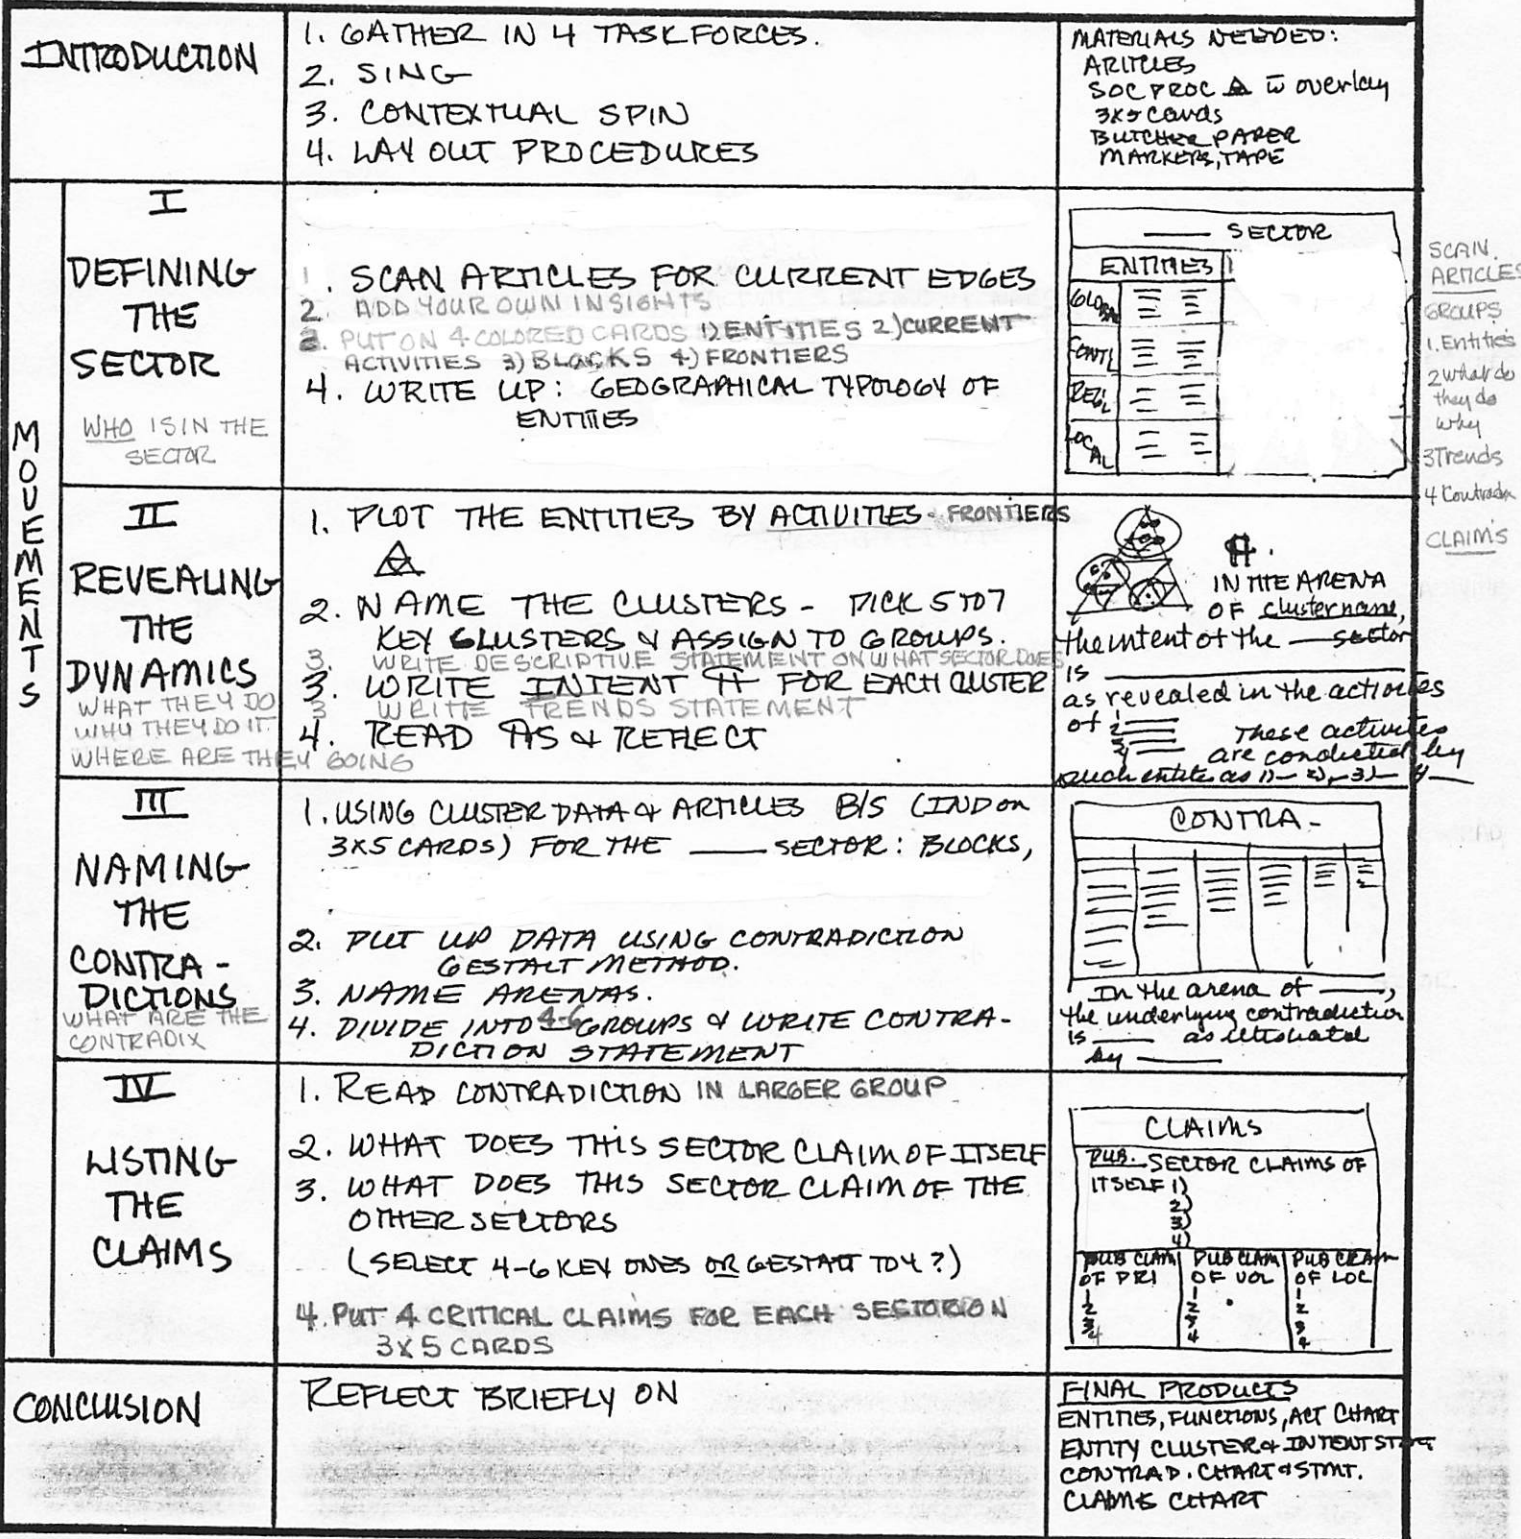 INTRODUCTION
1. GATHER IN 4 TASK FORCES.
2. SING
3. CONTEXTUAL SPIN
4. LAY OUT PROCEDURES
MATERIALS NEEDED:
ARITCLES
SOC PROC △ w̄ overlay
3x5 cards
BUTCHER PAPER
MARKERS, TAPE
MOVEMENTS
I
DEFINING
THE
SECTOR
WHO IS IN THE
SECTOR
1. SCAN ARTICLES FOR CURRENT EDGES
2. ADD YOUR OWN INSIGHTS
3. PUT ON 4 COLORED CARDS 1) ENTITIES 2) CURRENT
ACTIVITIES 3) BLOCKS 4) FRONTIERS
4. WRITE UP: GEOGRAPHICAL TYPOLOGY OF
ENTITIES
____ SECTOR
ENTITIES
GLOBAL
CONTL
REG'L
LOCAL
SCAN
ARTICLES
GROUPS
1. Entities
2 what do
they do
why
3 Trends
4 Contradx
CLAIM'S
II
REVEALING
THE
DYNAMICS
WHAT THEY DO
WHY THEY DO IT
WHERE ARE THEY GOING
1. PLOT THE ENTITIES BY ACTIVITIES - FRONTIERS
△
2. NAME THE CLUSTERS - PICK 5 TO 7
KEY CLUSTERS & ASSIGN TO GROUPS.
3. WRITE DESCRIPTIVE STATEMENT ON WHAT SECTOR DOES
3. WRITE INTENT ¶ FOR EACH CLUSTER
3 WRITE TRENDS STATEMENT
4. READ ¶S & REFLECT
¶.
IN THE ARENA
OF cluster name,
the intent of the ___ sector
is ____
as revealed in the activites
of 1 ___
2 ___
3 ___
4 ___
These activites
are conducted by
such entite as 1)— 2)— 3)— 4—
III
NAMING
THE
CONTRA-
DICTIONS
WHAT ARE THE
CONTRADIX
1. USING CLUSTER DATA & ARTICLES B/S (IND on
3x5 CARDS) FOR THE ____ SECTOR: BLOCKS,
2. PUT UP DATA USING CONTRADICTION
GESTALT METHOD.
3. NAME ARENAS.
4. DIVIDE INTO 4-6 GROUPS & WRITE CONTRA-
DICTION STATEMENT
CONTRA-
In the arena of ____,
the underlying contradiction
is ____ as illtstrated
by ____
IV
LISTING
THE
CLAIMS
1. READ CONTRADICTION IN LARGER GROUP
2. WHAT DOES THIS SECTOR CLAIM OF ITSELF
3. WHAT DOES THIS SECTOR CLAIM OF THE
OTHER SECTORS
(SELECT 4-6 KEY ONES OR GESTALT TO 4?)
4. PUT 4 CRITICAL CLAIMS FOR EACH SECTOR ON
3x5 CARDS
CLAIMS
PUB. SECTOR CLAIMS OF
ITSELF 1)
2)
3)
4)
PUB CLAIM
OF PRI
1
2
3
4
PUB CLAIM
OF VOL
1
2
3
4
PUB CLAIM
OF LOC
1
2
3
4
CONCLUSION
REFLECT BRIEFLY ON
FINAL PRODUCTS
ENTITIES, FUNCTIONS, ACT CHART
ENTITY CLUSTER & INTENT STMT
CONTRAD. CHART & STMT.
CLAIMS CHART